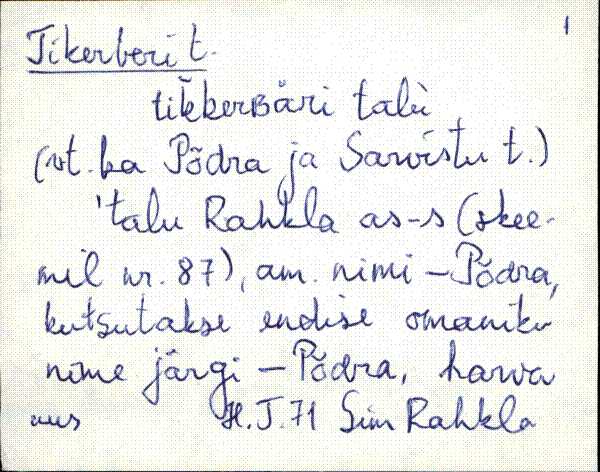 1
Tikerberi t.
tik̆kerʙäri talù
(vt. ka Põdra ja Sarvistu t.)
'talu Rahkla as-s (skee-
mil nr. 87), am. nimi – Põdra,
kutsutakse endise omaniku
nime järgi – Põdra, harva
H. J. 71 Sim Rahkla